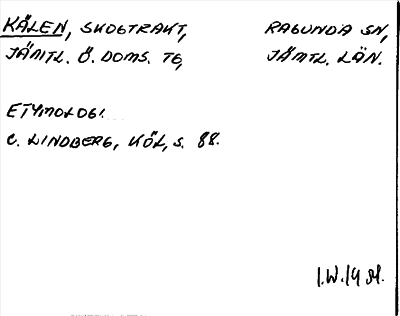 KÅLEN, SKOGTRAKT, RAGUNDA SN,
JÄMTL. Ö. DOMS. TG, JÄMTL. LÄN.
ETYMOLOGI.
C. LINDBERG, KÖL, S. 88.
I.W. 19